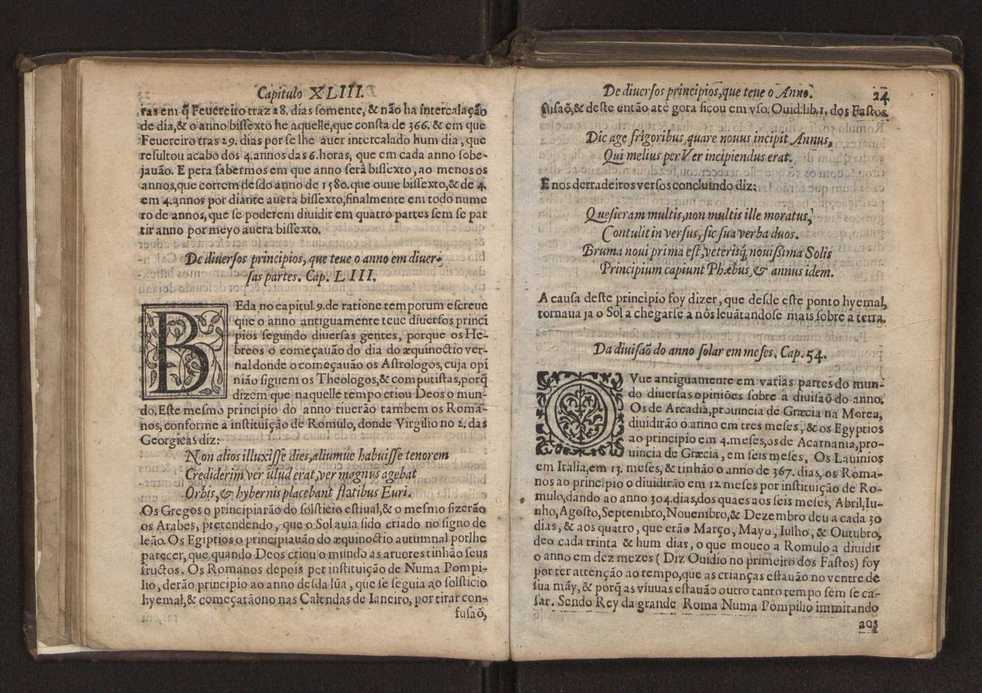 Capitulo XLIII.
ras em q̃ Feuereiro traz 28. dias somente, & não ha intercalação
de dia, & o anno bissexto he aquelle, que consta de 366. & em que
Feuereiro tras 29. dias por se lhe auer intercalado hum dia, que
resultou acabo dos 4. annos das 6. horas, que em cada anno sobe-
jauão. E pera sabermos em que anno serà bissexto, ao menos os
annos, que correm desdo anno de 1580. que ouue bissexto, & de 4.
em 4. annos por diante auera bissexto, finalmente em todo nume
ro de annos, que se poderem diuidir em quatro partes sem se par
tir anno por meyo auera bissexto.
De diuersos principios, que teue o anno em diuer-
sas partes. Cap. LIII.
BEda no capitul. 9. de ratione temporum escreue
que o anno antiguamente teue diuersos princi
pios segundo diuersas gentes, porque os He-
breos o começauão do dia do æquinoctio ver-
nal donde o começauão os Astrologos, cuja opi
nião siguem os Theologos, & computistas, porq̃
dizem que naquelle tempo criou Deos o mun-
do. Este mesmo principio do anno tiuerão tambem os Roma-
nos, conforme a instituição de Romulo, donde Virgilio no 2. das
Georgicas diz:
Non alios illuxisse dies, aliumùe habuisse tenorem
Crediderim ver illud erat, ver magnus agebat
Orbis, & hybernis placebant flatibus Euri.
Os Gregos o principiarão do solsticio estiual, & o mesmo fizerão
os Arabes, pretendendo, que o Sol auia sido criado no signo de
leão. Os Egiptios o principiauão do æquinoctio autumnal por lhe
parecer, que quando Deos criou o mundo as aruores tinhão seus
fructos. Os Romanos depois per instituição de Numa Pompi-
lio, derão principio ao anno desda lũa, que se seguia ao solsticio
hyemal, & começarãono nas Calendas de Ianeiro, por tirar con-
fusaõ,
De diuersos principios, que teue o Anno. 24
fusaõ, & deste então atè gora ficou em vso. Ouid. lib. 1. dos Fastos
Dic age frigoribus quare nouus incipit Annus,
Qui melius per Ver incipiendus erat.
E nos derradeiros versos concluindo diz:
Quesieram multis, non multis ille moratus,
Contulit in versus, sic sua verba duos.
Bruma noui prima est, veterisq́ nouissima Solis
Principium capiunt Phæbus, & annus idem.
A causa deste principio foy dizer, que desde este ponto hyemal,
tornaua ja o Sol a chegarse a nòs leuãtandose mais sobre a terra.
Da diuisaõ do anno solar em meses. Cap. 54.
OVue antiguamente em varias partes do mun-
do diuersas opiniões sobre a diuisaõ do anno.
Os de Arcadia, prouincia de Græcia na Morea,
diuidirão o anno em tres meses, & os Egyptios
ao principio em 4. meses, os de Acarnania, pro-
uincia de Græcia, em seis meses. Os Lauinios
em Italia, em 13. meses, & tinhão o anno de 367. dias, os Roma-
nos ao principio o diuidirão em 12 meses por instituição de Ro-
mulo, dando ao anno 304. dias, dos quaes aos seis meses, Abril, Iu-
nho, Agosto, Septembro, Nouembro, & Dezembro deu a cada 30
dias, & aos quatro, que erão Março, Mayo, Iulho, & Outubro,
deo cada trinta & hum dias, o que moueo a Romulo a diuidir
o anno em dez mezes (Diz Ouidio no primeiro dos Fastos) foy
por ter attenção ao tempo, que as crianças estauão no ventre de
sua mãy, & porq̃ as viuuas estauão outro tanto tempo sem se ca-
sar. Sendo Rey da grande Roma Numa Pompilio immitando
aos